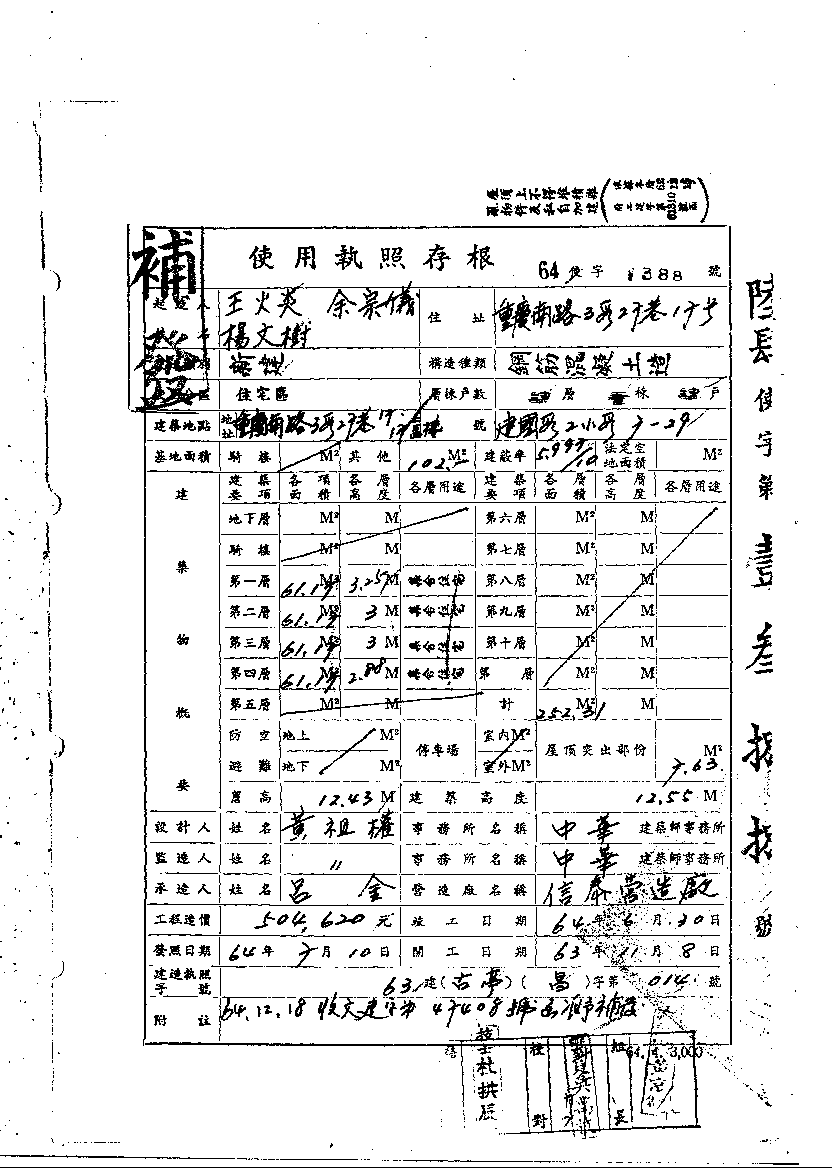 屋頂上不得堆積雜
補
使用執照存根
64使字1388號
起造人
王火炎 余宗儀
楊文樹
住址
重慶南路3段27巷17号
構造種類
鋼筋混凝土造
住宅區
層棟戶數
層 棟 戶
建築地點
地址
重慶南路3段27巷
號
建國段2小段7-29
基地面積 騎樓 M² 其他 M² 建蔽率 法定空地面積 M²
建築物概要
建築要項 各項面積 各層高度 各層用途 建築要項 各層面積 各層高度 各層用途
地下層 M² M 第六層 M² M
騎樓 M² M 第七層 M² M
第一層 61.17 M² 3.25 M 集合住宅 第八層 M² M
第二層 61.17 M² 3 M 集合住宅 第九層 M² M
第三層 61.17 M² 3 M 集合住宅 第十層 M² M
第四層 61.17 M² 2.88 M 集合住宅 第 層 M² M
第五層 M² M 計 252.31 M² M
防空避難 地上 M² 地下 M² 停車場 室內M² 室外M² 屋頂突出部份 7.63 M²
簷高 12.43 M 建築高度 12.55 M
設計人 姓名 黃祖權 事務所名稱 中華 建築師事務所
監造人 姓名 〃 事務所名稱 中華 建築師事務所
承造人 姓名 呂金 營造廠名稱 信泰營造廠
工程造價 504,620元 竣工日期 64年6月30日
發照日期 64年7月10日 開工日期 63年11月8日
建造執照字號 63建(古亭)(昌)字第014號
附註 64.12.18收文建字第47408號函准予補發
64.4.3,000
技士杜拱辰
校對
組長
陸肆使字第壹叁捌捌號